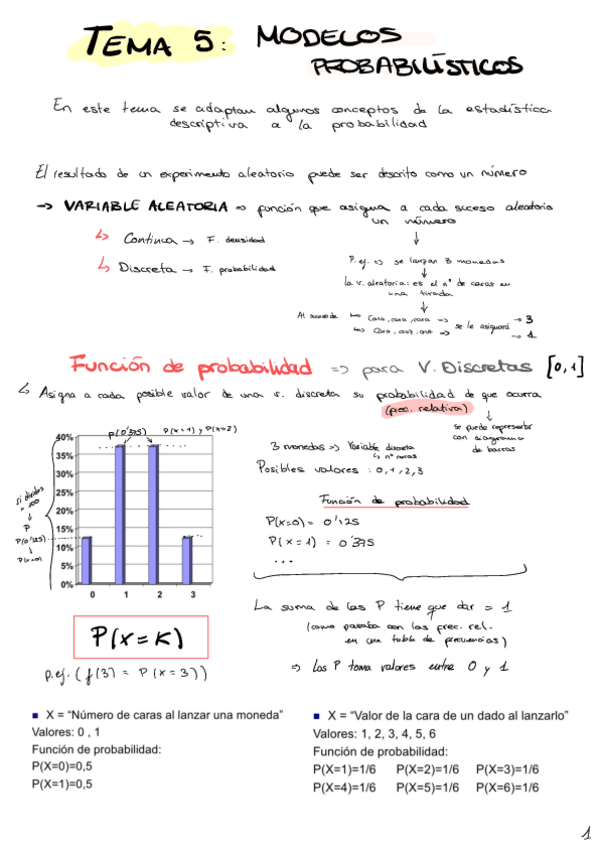 TEMA 5: MODELOS
PROBABILÍSTICOS
En este tema se adaptan algunos conceptos de la estadística
descriptiva a la probabilidad
El resultado de un experimento aleatorio puede ser descrito como un número
→ VARIABLE ALEATORIA ⇒ función que asigna a cada suceso aleatorio
un número
↳ Continua → F. densidad
↳ Discreta → F. probabilidad
P. ej. ⇒ se lanzan 3 monedas
la v. aleatoria: es el nº de caras en
una tirada
Al suceso de
cara, cara, cara ⇒
se le asignará → 3
→ 1
Función de probabilidad ⇒ para V. Discretas [0,1]
↳ Asigna a cada posible valor de una v. discreta su probabilidad de que ocurra
(frec. relativa)
se puede representar
con diagrama
de barras
P(0'375) P(x=1) y P(x=2)
40%
35%
30%
25%
20%
15%
10%
5%
0%
0 1 2 3
Si divides
÷ 100
P
P(0'125)
P(x=0)
3 monedas ⇒ Variable discreta
↳ nº caras
Posibles valores: 0, 1, 2, 3
Función de probabilidad
P(x=0) = 0'125
P(x=1) = 0'375
...
La suma de las P tiene que dar = 1
(como pasaba con las frec. rel.
en una tabla de frecuencias)
⇒ Las P toma valores entre 0 y 1
P(X=K)
p.ej. (f(3) = P(x=3))
X = “Número de caras al lanzar una moneda”
Valores: 0 , 1
Función de probabilidad:
P(X=0)=0,5
P(X=1)=0,5
X = “Valor de la cara de un dado al lanzarlo”
Valores: 1, 2, 3, 4, 5, 6
Función de probabilidad:
P(X=1)=1/6 P(X=2)=1/6 P(X=3)=1/6
P(X=4)=1/6 P(X=5)=1/6 P(X=6)=1/6
1